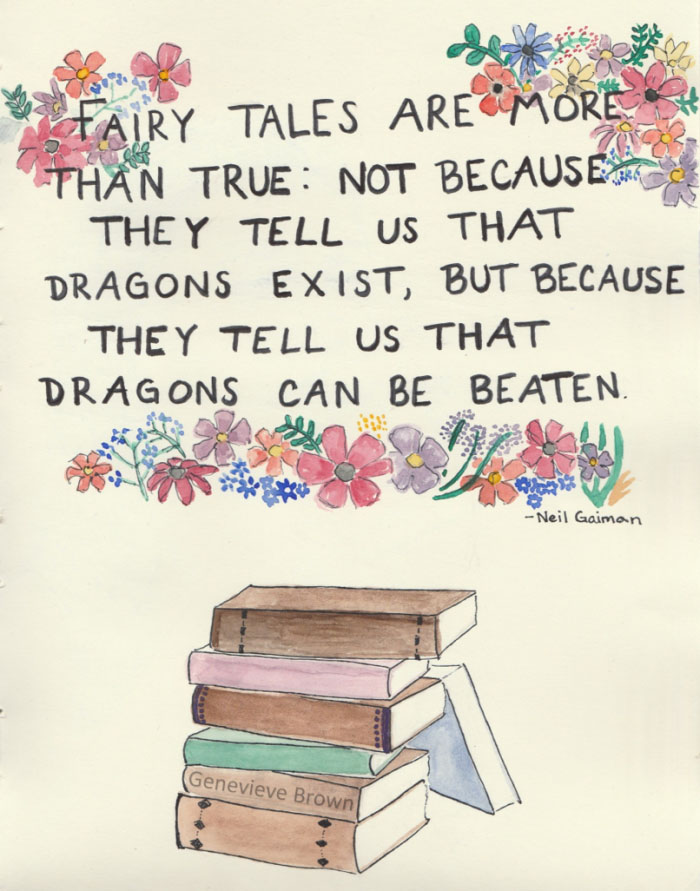 FAIRY TALES ARE MORE
THAN TRUE: NOT BECAUSE
THEY TELL US THAT
DRAGONS EXIST, BUT BECAUSE
THEY TELL US THAT
DRAGONS CAN BE BEATEN.
-Neil Gaiman
Genevieve Brown